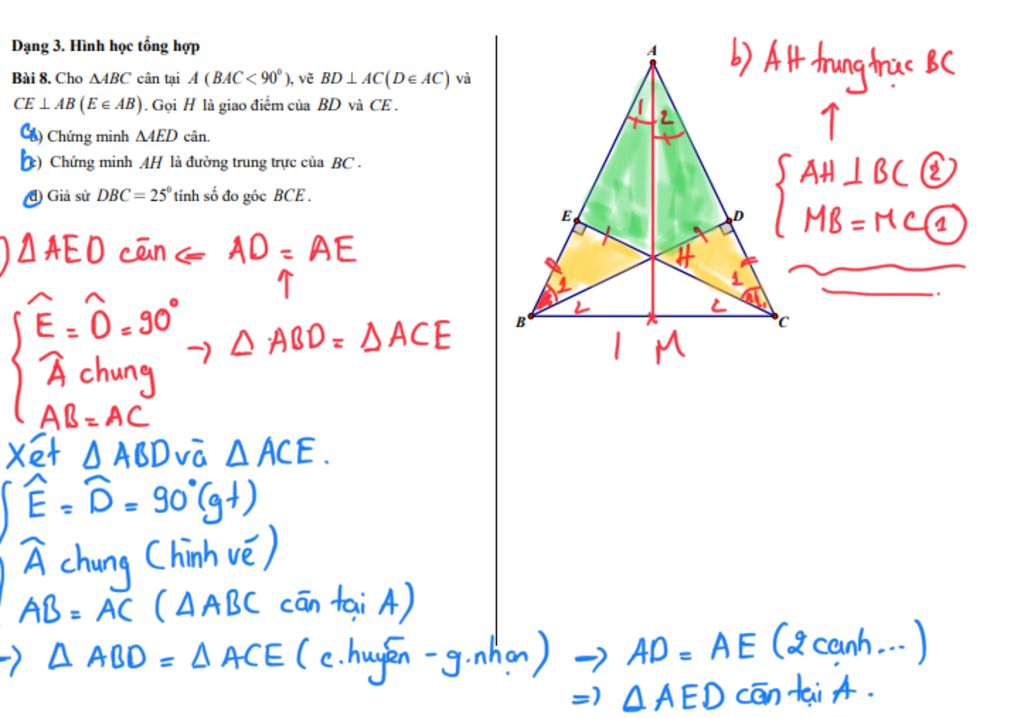 Dạng 3. Hình học tổng hợp
Bài 8. Cho ΔABC cân tại A (BAC < 90⁰), vẽ BD ⊥ AC (D ∈ AC) và
CE ⊥ AB (E ∈ AB). Gọi H là giao điểm của BD và CE.
a) Chứng minh ΔAED cân.
b) Chứng minh AH là đường trung trực của BC.
d) Giả sử DBC = 25⁰ tính số đo góc BCE.
) Δ AED cân ⇐ AD = AE
↑
Ê = D̂ = 90°
 chung
AB = AC
→ Δ ABD = Δ ACE
Xét Δ ABD và Δ ACE.
Ê = D̂ = 90° (gt)
 chung (hình vẽ)
AB = AC (ΔABC cân tại A)
→ Δ ABD = Δ ACE (c.huyền - g.nhọn)
→ AD = AE (2 cạnh...)
⇒ Δ AED cân tại A.
b) AH trung trực BC
↑
AH ⊥ BC ②
MB = MC ①
A
1 2
E D
H
1 1
2 2
B C
M